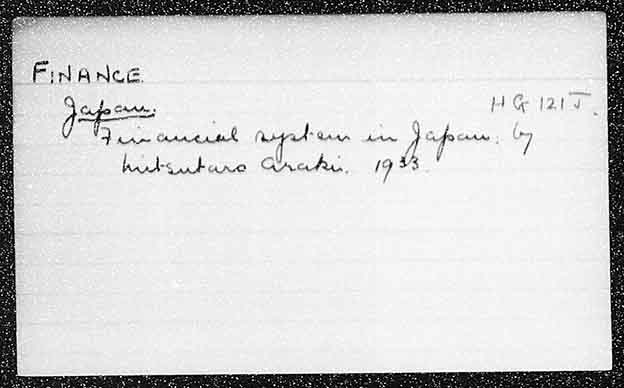 FINANCE.
Japan. HG 121 J.
Financial system in Japan. by
Mitsutaro Araki. 1933.